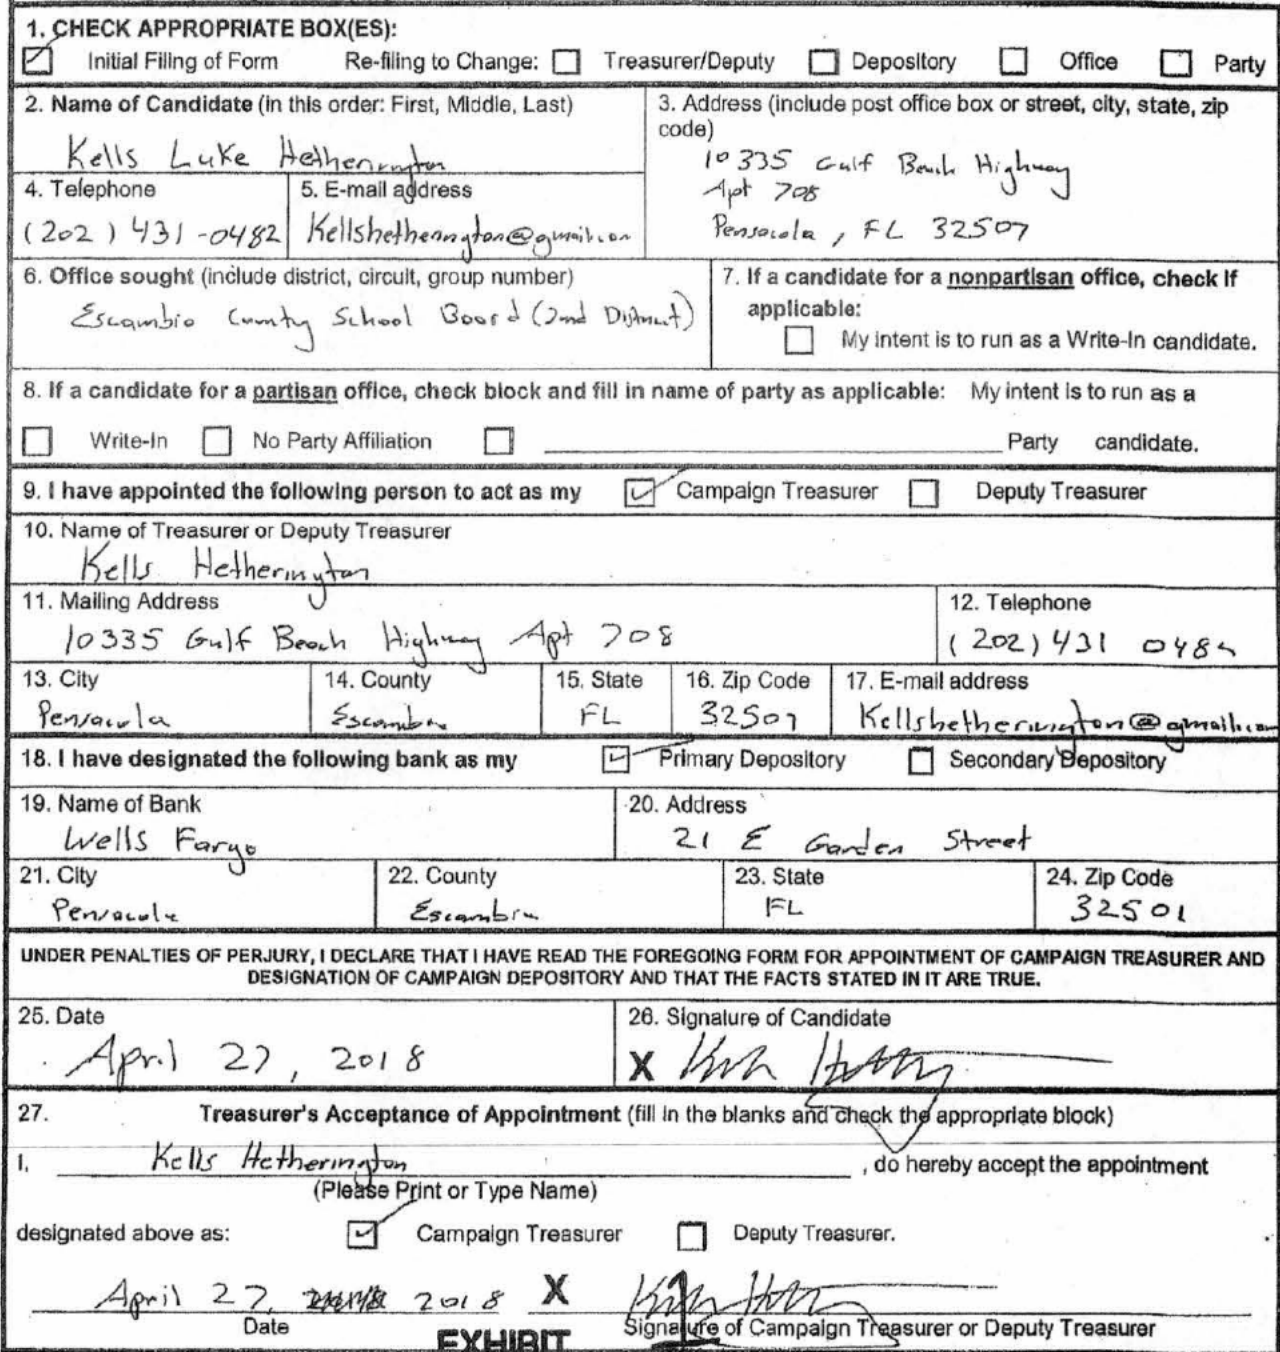 1. CHECK APPROPRIATE BOX(ES):
Initial Filing of Form Re-filing to Change: Treasurer/Deputy Depository Office Party
2. Name of Candidate (in this order: First, Middle, Last)
Kells Luke Hetherington
3. Address (include post office box or street, city, state, zip
code)
10335 Gulf Beach Highway
Apt 708
Pensacola, FL 32507
4. Telephone
(202) 431-0482
5. E-mail address
Kellshetherington@gmail.com
6. Office sought (include district, circuit, group number)
Escambia County School Board (2nd District)
7. If a candidate for a nonpartisan office, check if
applicable:
My intent is to run as a Write-In candidate.
8. If a candidate for a partisan office, check block and fill in name of party as applicable: My intent is to run as a
Write-In No Party Affiliation Party candidate.
9. I have appointed the following person to act as my Campaign Treasurer Deputy Treasurer
10. Name of Treasurer or Deputy Treasurer
Kells Hetherington
11. Mailing Address
10335 Gulf Beach Highway Apt 708
12. Telephone
(202) 431 0482
13. City
Pensacola
14. County
Escambia
15. State
FL
16. Zip Code
32507
17. E-mail address
Kellshetherington@gmail.com
18. I have designated the following bank as my Primary Depository Secondary Depository
19. Name of Bank
Wells Fargo
20. Address
21 E Garden Street
21. City
Pensacola
22. County
Escambia
23. State
FL
24. Zip Code
32501
UNDER PENALTIES OF PERJURY, I DECLARE THAT I HAVE READ THE FOREGOING FORM FOR APPOINTMENT OF CAMPAIGN TREASURER AND
DESIGNATION OF CAMPAIGN DEPOSITORY AND THAT THE FACTS STATED IN IT ARE TRUE.
25. Date
April 27, 2018
26. Signature of Candidate
X
27. Treasurer's Acceptance of Appointment (fill in the blanks and check the appropriate block)
I, Kells Hetherington , do hereby accept the appointment
(Please Print or Type Name)
designated above as: Campaign Treasurer Deputy Treasurer.
April 27, 2018 X
Date Signature of Campaign Treasurer or Deputy Treasurer
EXHIBIT 1